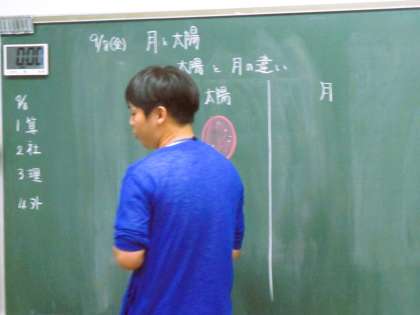 9/8(金) 月と太陽
太陽と月の違い
太陽
月
9/8
1 算
2 社
3 理
4 外
0:00